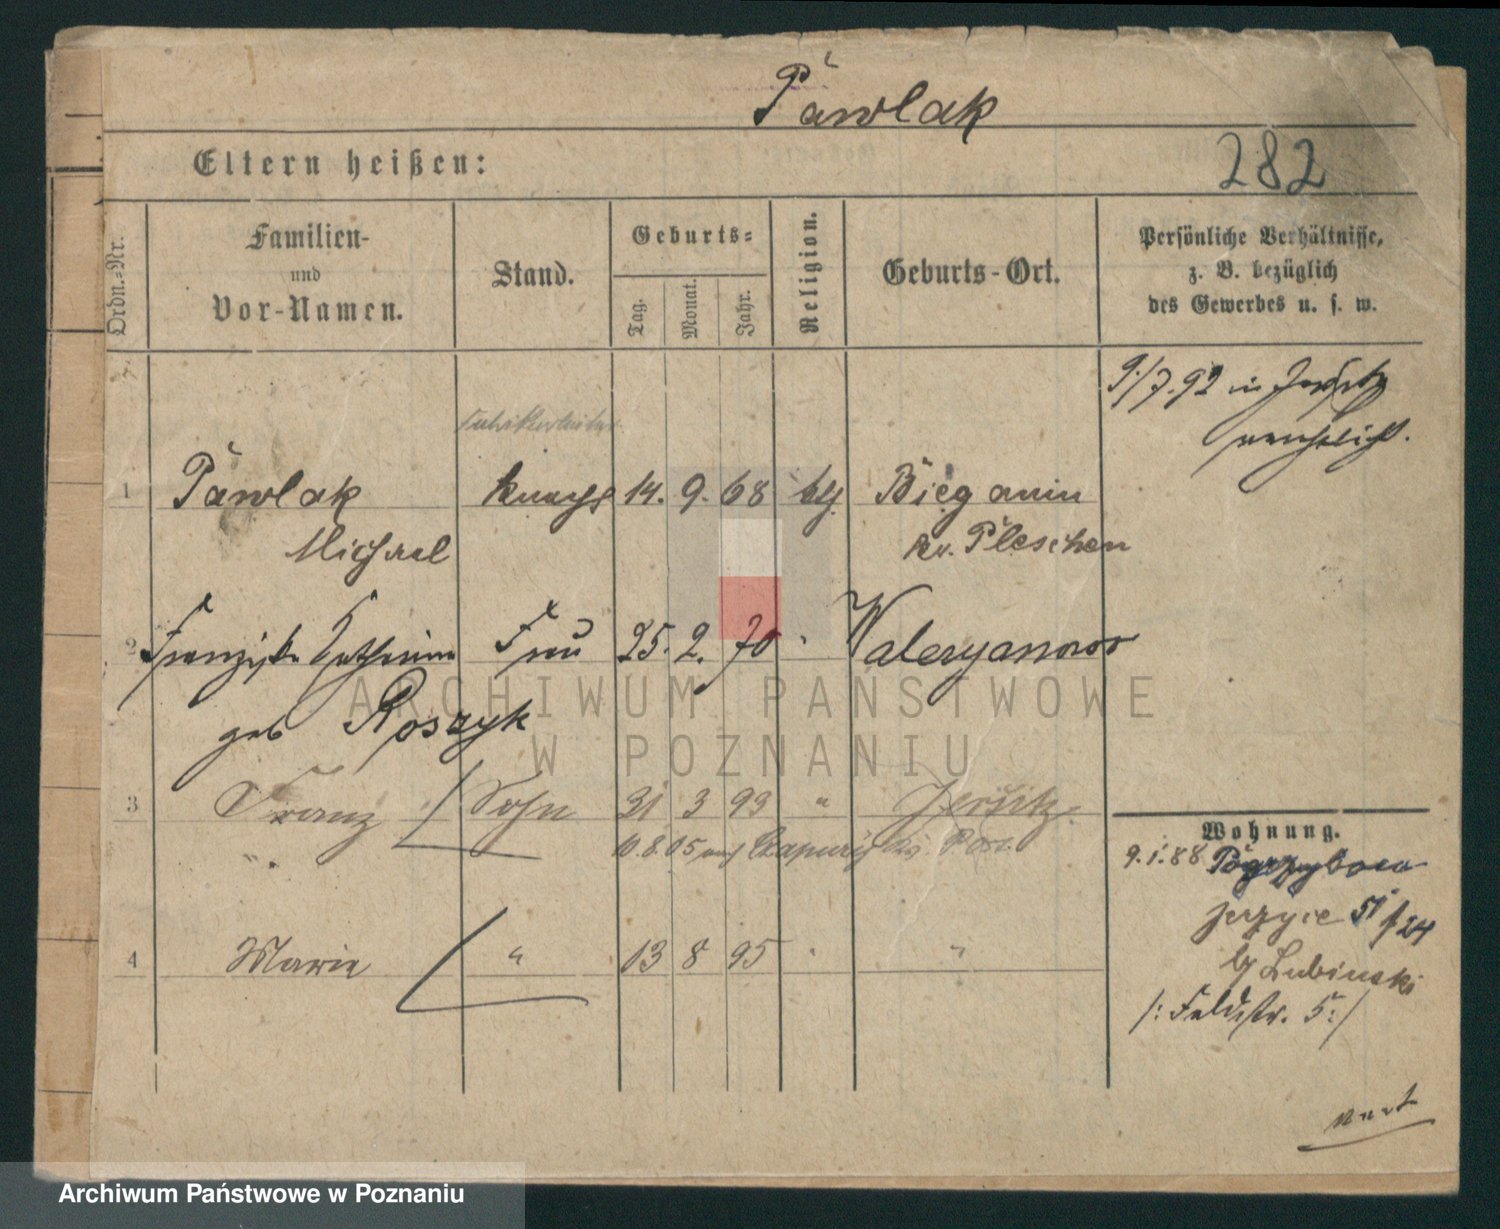 Pawlak
Eltern heißen:
282
Ordn.-Nr.
Familien-
und
Vor-Namen.
Stand.
Geburts-
Tag.
Monat.
Jahr.
Religion.
Geburts-Ort.
Persönliche Verhältnisse,
z. B. bezüglich
des Gewerbes u. s. w.
9./7.92 in Jersitz
verehelicht.
1 Pawlak Knecht 14. 9. 68 Bieganin
Michael Kr. Pleschen
2 Franziska Catharina Frau 25. 2. 70 Waleryanowo
geb Roszyk
3 Franz Sohn 31 3 93 " Jersitz.
10.8.05 auf
4 Marie " 13 8 95 " "
Wohnung.
9.1.88
Jerzyce 51 f 24
by Lubinski
/: Feldstr. 5 :/
ARCHIWUM PAŃSTWOWE
W POZNANIU
Archiwum Państwowe w Poznaniu